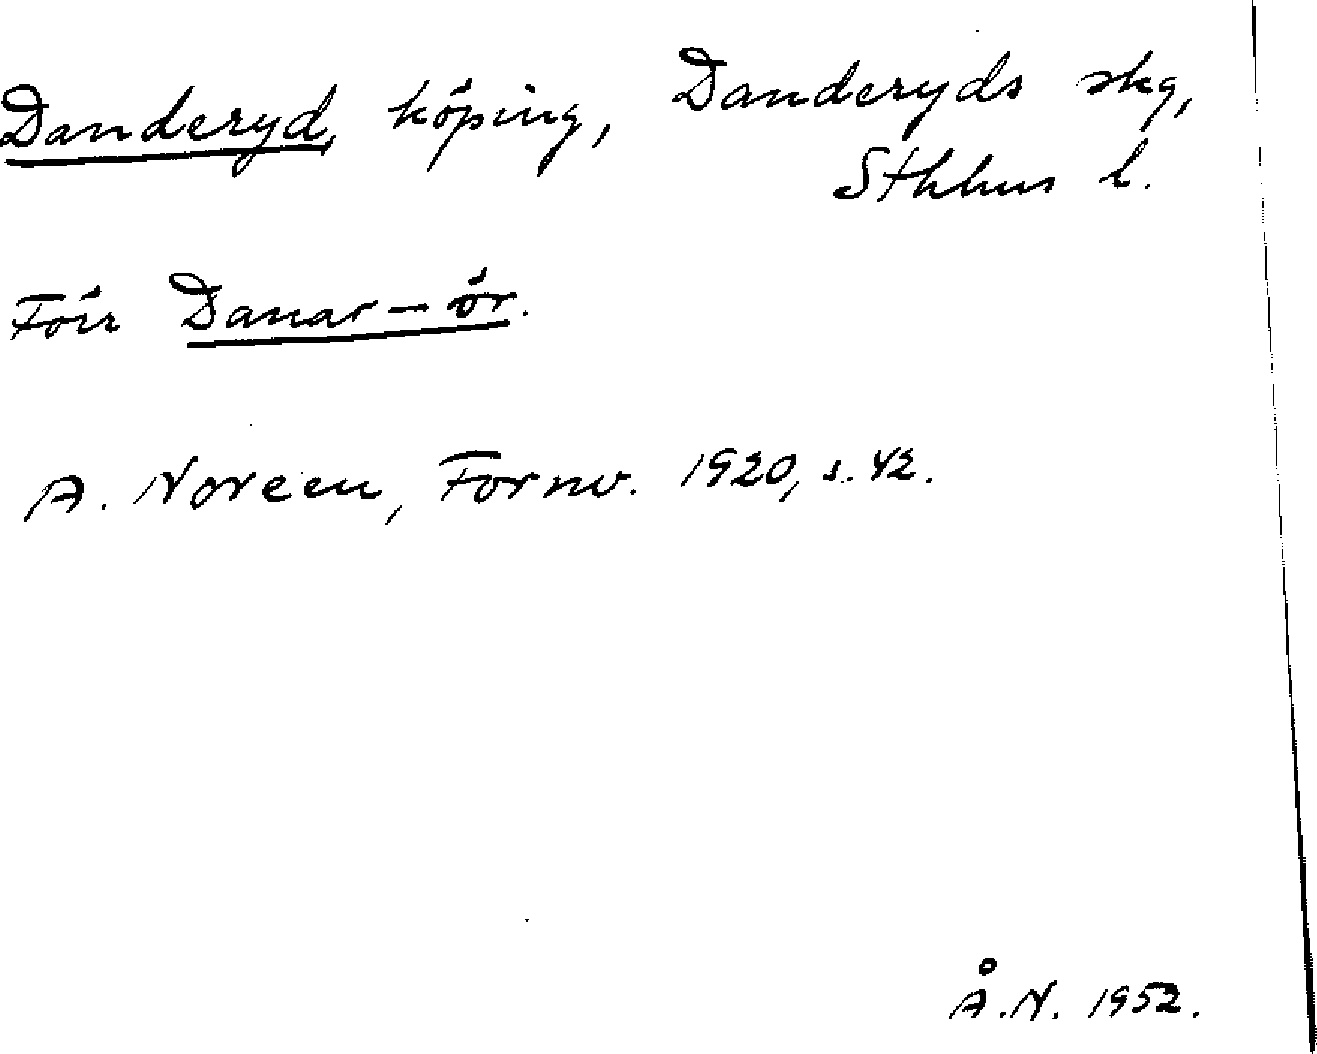 Danderyd, köping, Danderyds skg,
Sthlms l.
Förr Danar-ör.
A. Noreen, Fornv. 1920, s. 42.
Å.N. 1952.